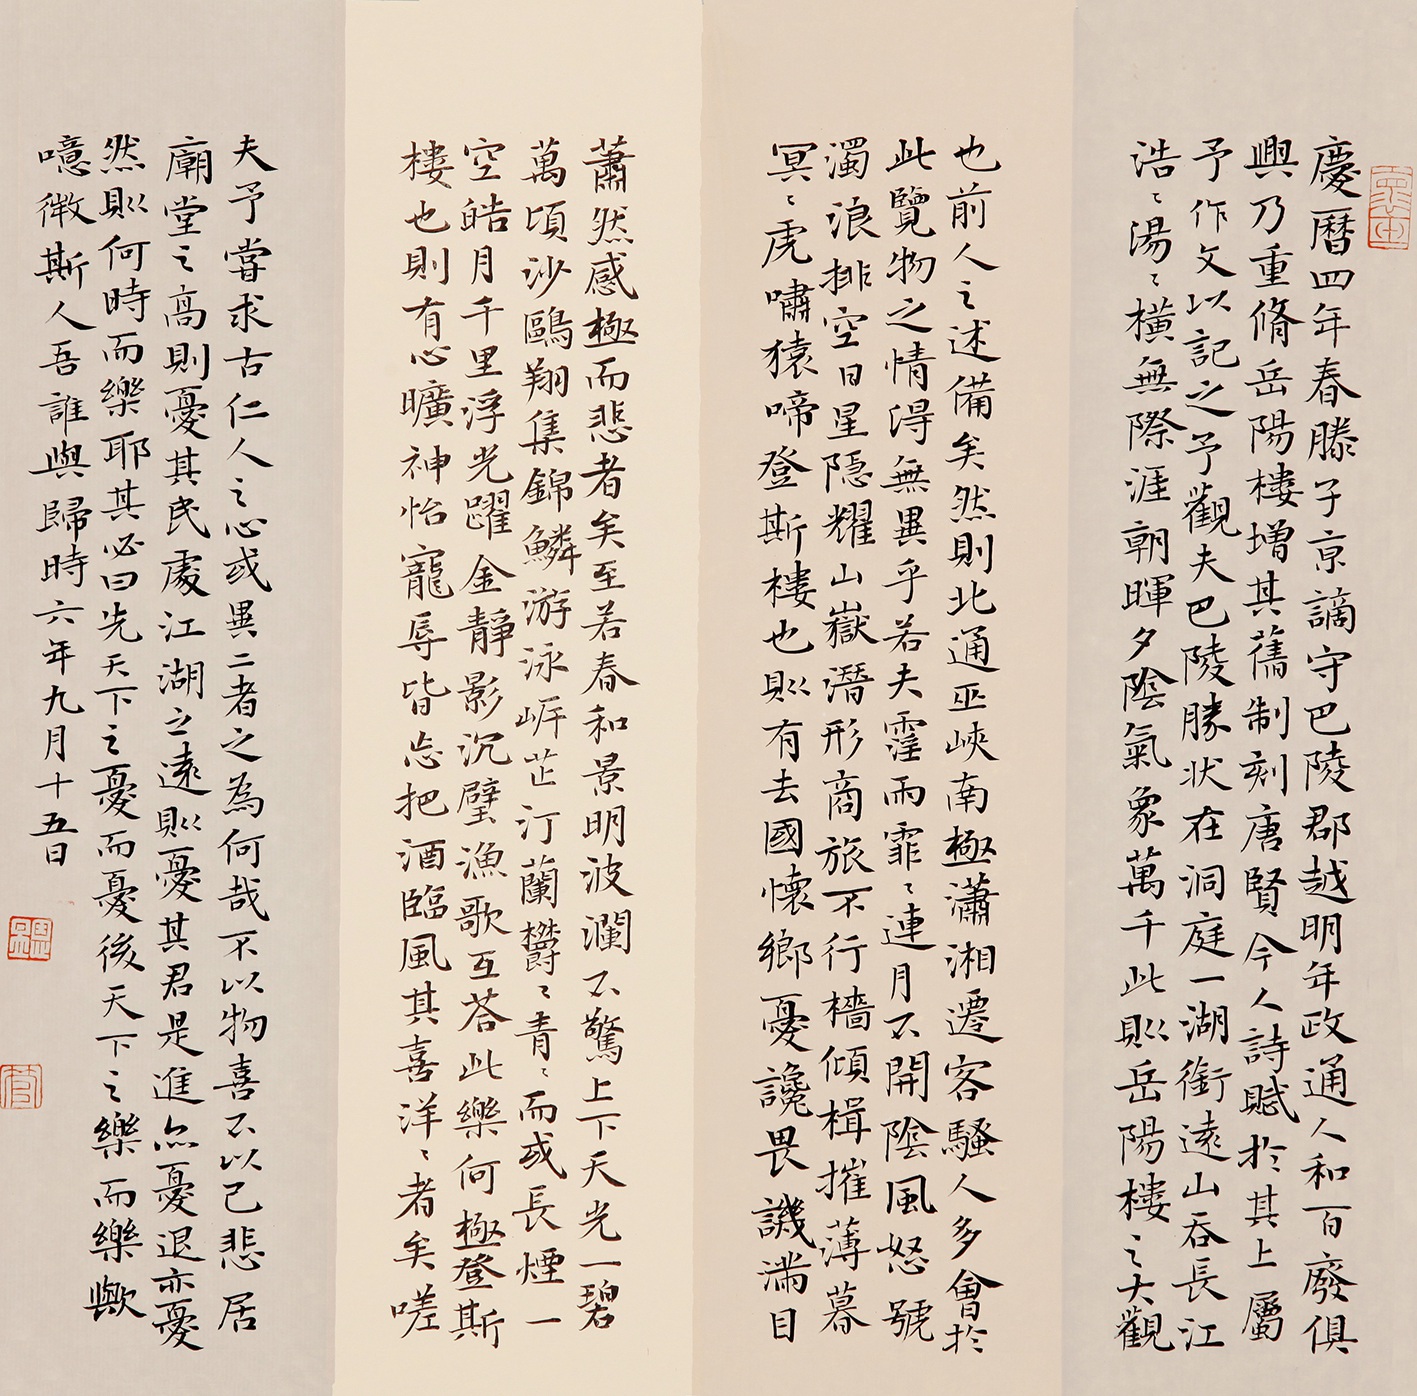 慶曆四年春滕子京謫守巴陵郡越明年政通人和百廢俱
興乃重脩岳陽樓增其舊制刻唐賢今人詩賦於其上屬
予作文以記之予觀夫巴陵勝狀在洞庭一湖銜遠山吞長江
浩〻湯〻橫無際涯朝暉夕陰氣象萬千此則岳陽樓之大觀
也前人之述備矣然則北通巫峽南極瀟湘遷客騷人多會於
此覽物之情得無異乎若夫霪雨霏〻連月不開陰風怒號
濁浪排空日星隱耀山嶽潛形商旅不行檣傾楫摧薄暮
冥〻虎嘯猿啼登斯樓也則有去國懷鄉憂讒畏譏滿目
蕭然感極而悲者矣至若春和景明波瀾不驚上下天光一碧
萬頃沙鷗翔集錦鱗游泳岸芷汀蘭欝〻青〻而或長煙一
空皓月千里浮光躍金靜影沉璧漁歌互荅此樂何極登斯
樓也則有心曠神怡寵辱皆忘把酒臨風其喜洋〻者矣嗟
夫予嘗求古仁人之心或異二者之為何哉不以物喜不以己悲居
廟堂之高則憂其民處江湖之遠則憂其君是進亦憂退亦憂
然則何時而樂耶其必曰先天下之憂而憂後天下之樂而樂歟
噫微斯人吾誰與歸時六年九月十五日